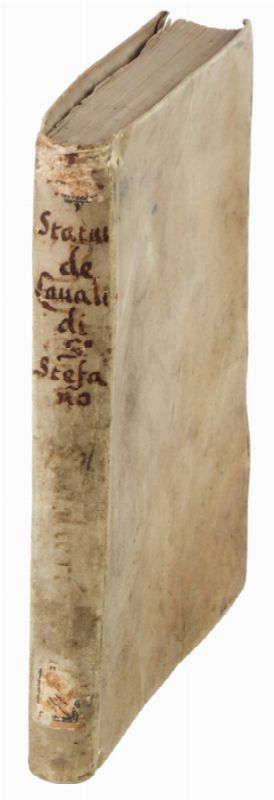 Statui
de
Cauali
di
S.
Stefa
no